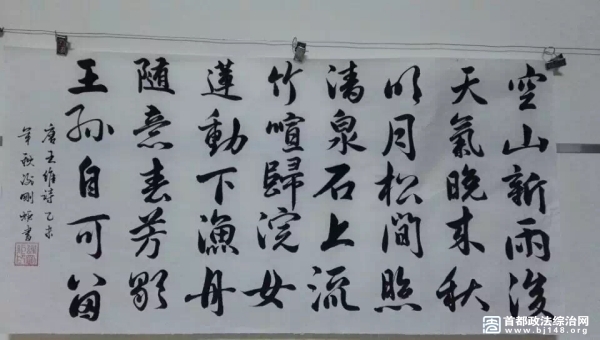 空山新雨後
天氣晚来秋
明月松間照
清泉石上流
竹喧歸浣女
蓮動下漁舟
随意春芳歇
王孫自可留
唐王维詩乙未
年秋月剛書
首都政法综治网
www.bj148.org